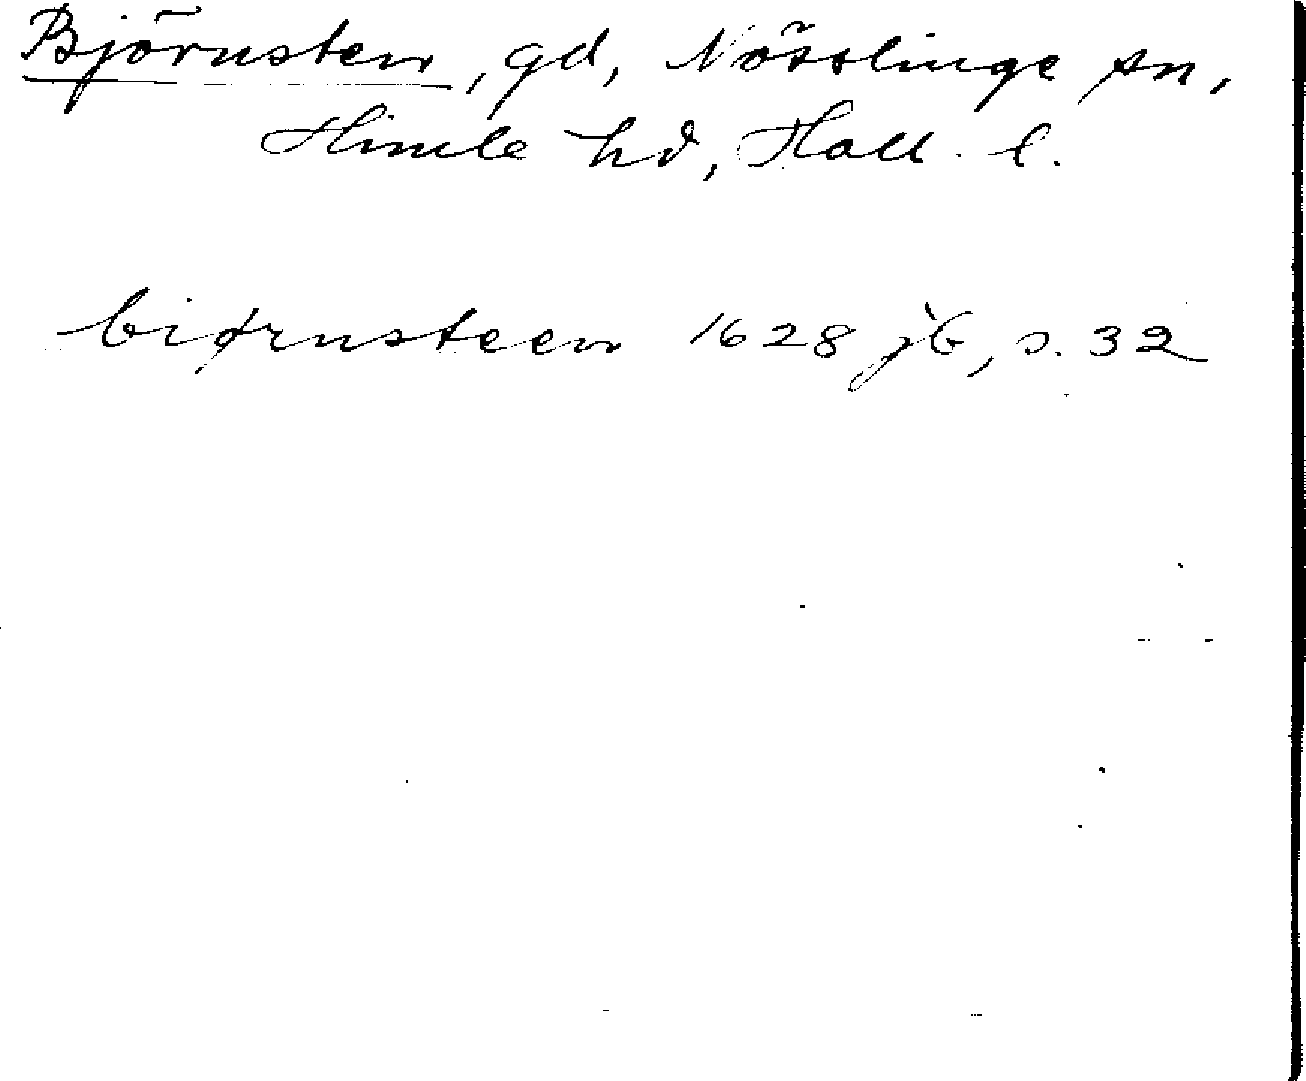 Björnsten, gd, Nösslinge sn,
Himle hd, Hall. l.
biørnsteen 1628 jb, s. 32